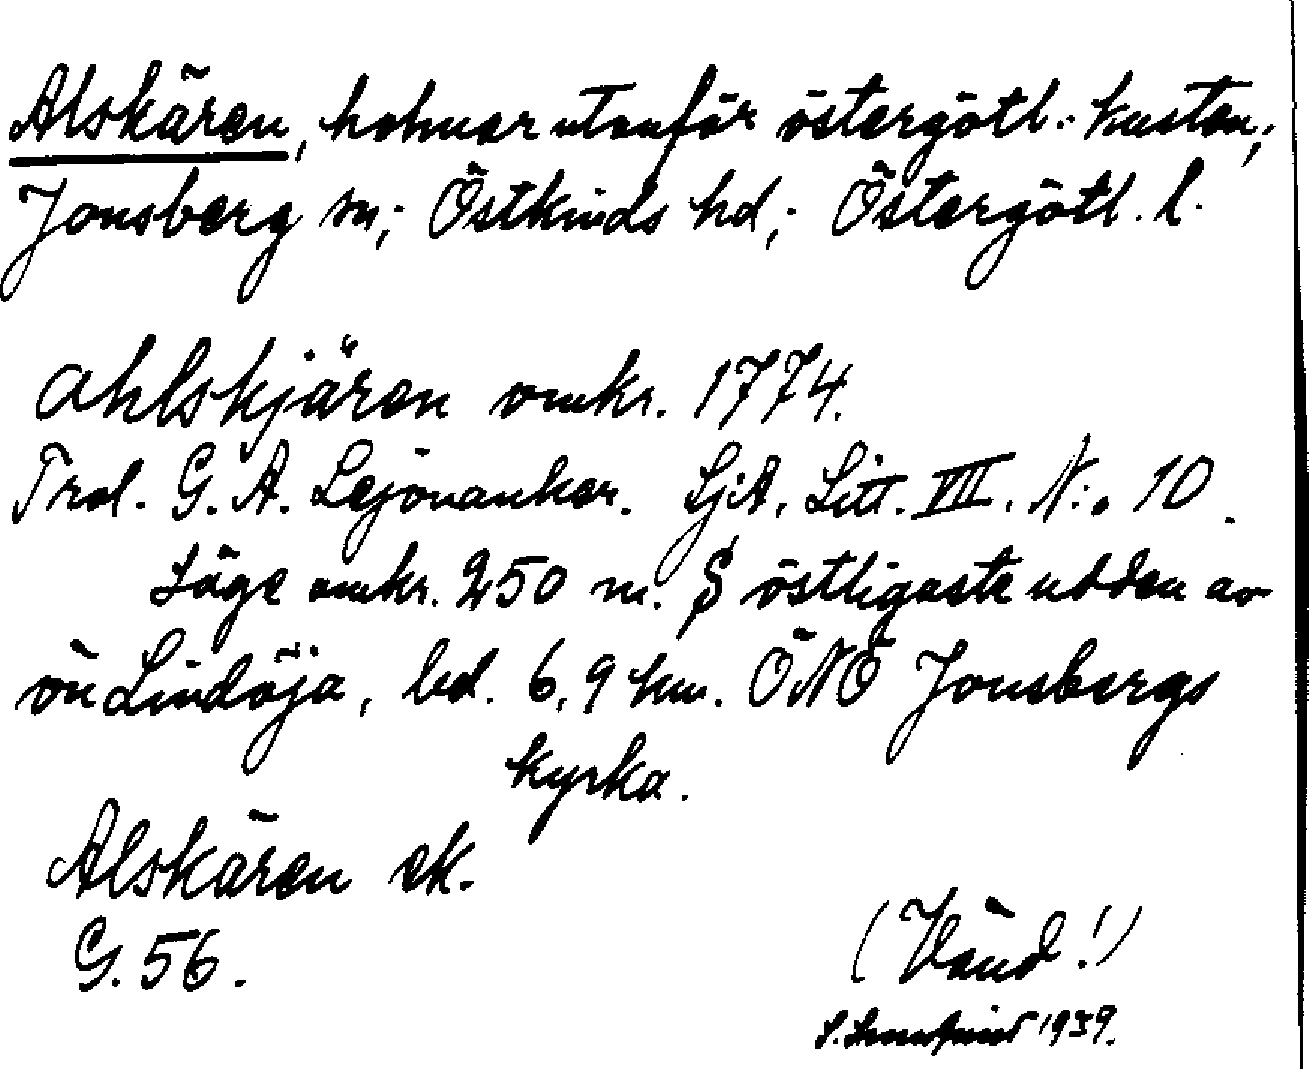 Alskären, holmar utanför östergötl. kusten,
Jonsberg sn; Östkinds hd; Östergötl. l.
Ahlskjären omkr. 1774.
Trol. G. A. Lejonanker. SjA. Litt. VII. N:o 10.
Läge omkr. 250 m. S östligaste udden av
ön Lindöja, bel. 6,9 km. ÖNÖ Jonsbergs
kyrka.
Alskären ek.
G. 56.
(Vänd!)
1939.